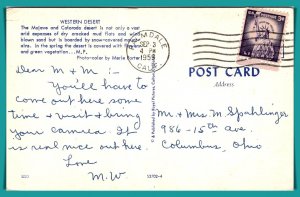 WESTERN DESERT
The Mojave and Colorado desert is not only a vast
arid expanses of dry cracked mud flats and wind
blown sand but is boarded by snow-covered mountains.
In the spring the desert is covered with flowers
and green vegetation ...M.F.
Photo-color by Merle Porter
PALMDALE
SEP 3
4 PM
1959
CALIF.
3¢
Dear M & M :- You'll have to
come out here some
time & visit & bring
your camera. It
is real nice out here
Love
M.W.
POST CARD
Address
Mr. & Mrs. M. Spahlinger
986-15th Ave.
Columbus, Ohio
S3702-4